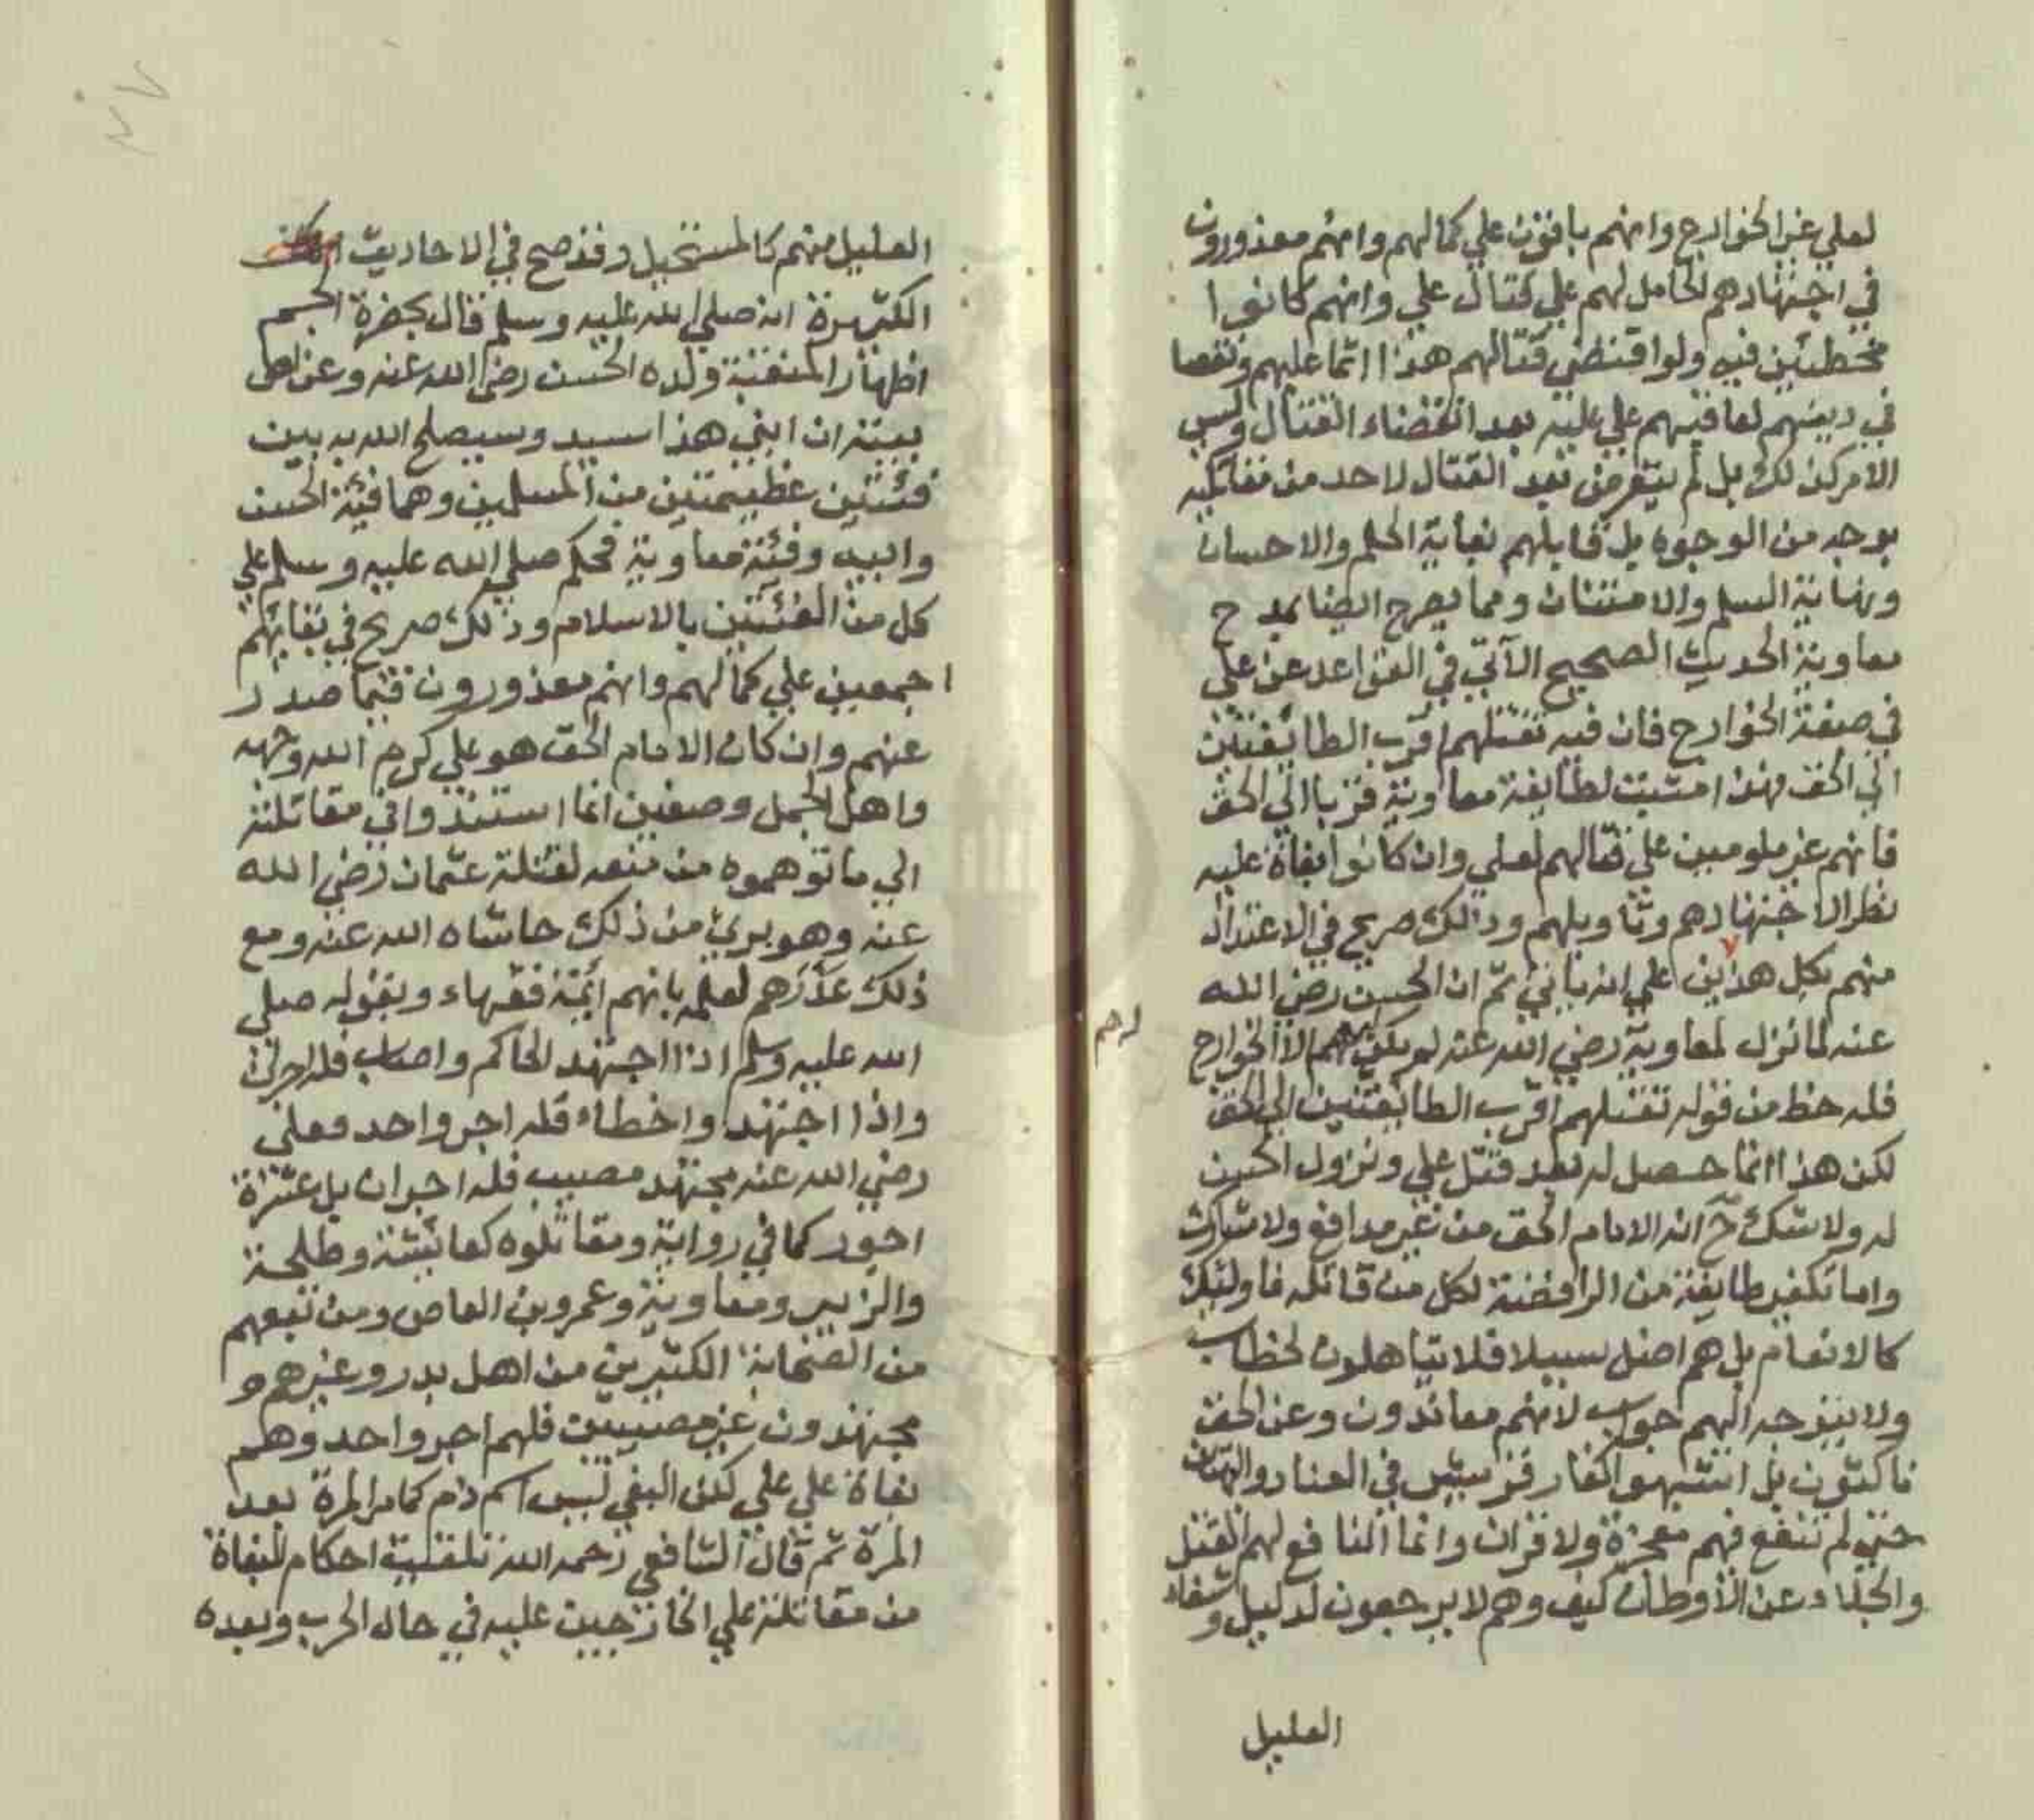 لعلي غير الخوارج وانهم باقون علي كمالهم وانهم معذورون
في اجتهادهم الحامل لهم علي قتال علي وانهم كانوا
مخطئين فيه ولو اقتضي قتالهم هذا اثما عليهم ونقصا
في دينهم لعاقبهم علي عليه بعد انقضاء القتال وليس
الامر كذلك بل لم يتعرض بعد القتال لاحد من مقاتليه
بوجه من الوجوه بل قابلهم بغاية الحلم والاحسان
ونهاية السلم والامتنان ومما يصرح ايضا بمدح
معاوية الحديث الصحيح الآتي في القواعد عن علي
في صفة الخوارج فان فيه تقتلهم اقرب الطايفتين
الي الحق فهذا مثبت لطايفة معاوية قربا الي الحق
فانهم غير ملومين علي قتالهم لعلي وان كانوا بغاة عليه
نظرا لاجتهادهم وتاويلهم وذلك صريح في الاعتداد
منهم بكل هذين علي انه ياتي ثم ان الحسن رضي الله
عنه لما نزل لمعاوية رضي الله عنه لم يكن الا الخوارج
لهم
فله حظ من قوله تقتلهم اقرب الطايفتين الي الحق
لكن هذا انما حصل له بعد قتل علي ونزول الحسن
له ولا شك ح انه الامام الحق من غير مدافع ولا مشارك
واما تكفير طايفة من الرافضة لكل من قاتله فاولئك
كالانعام بل هم اضل سبيلا فلا يتاهلون لخطاب
ولا يتوجه اليهم جواب لانهم معاندون وعن الحق
ناكثون بل اشبهوا كفار قريش في العناد والبهتان
حتي لم تنفع فيهم معجزة ولا قران وانما النافع لهم القتل
والجلاء عن الاوطان كيف وهم لا يرجعون لدليل وشفاء
العليل
العليل منهم كالمستحيل وقد صح في الاحاديث
الكثيرة انه صلي الله عليه وسلم قال بحضرة الجم
اظهارا لمنقبة ولده الحسن رضي الله عنه وعن اهل
بيته ان ابني هذا سيد وسيصلح الله به بين
فئتين عظيمتين من المسلمين وهما فئة الحسن
وابيه وفئة معاوية فحكم صلي الله عليه وسلم علي
كل من الفئتين بالاسلام وذلك صريح في بقائهم
اجمعين علي كمالهم وانهم معذورون فيما صدر
عنهم وان كان الامام الحق هو علي كرم الله وجهه
واهل الجمل وصفين انما استندوا في مقاتلته
الي ما توهموه من منعه لقتلة عثمان رضي الله
عنه وهو بريئ من ذلك حاشاه الله عنه ومع
ذلك عذرهم لعلمه بانهم ائمة فقهاء وبقوله صلي
الله عليه وسلم اذا اجتهد الحاكم واصاب فله اجران
واذا اجتهد واخطاء فله اجر واحد فعلي
رضي الله عنه مجتهد مصيب فله اجران بل عشرة
اجور كما في رواية ومقاتلوه كعائشة وطلحة
والزبير ومعاوية وعمرو بن العاص ومن تبعهم
من الصحابة الكثيرين من اهل بدر وغيرهم
مجتهدون غير مصيبين فلهم اجر واحد وهم
بغاة علي علي لكن البغي ليس اسم ذم كما مر المرة بعد
المرة ثم قال الشافعي رحمه الله تلقيت احكام البغاة
من مقاتلة علي الخارجين عليه في حال الحرب وبعده